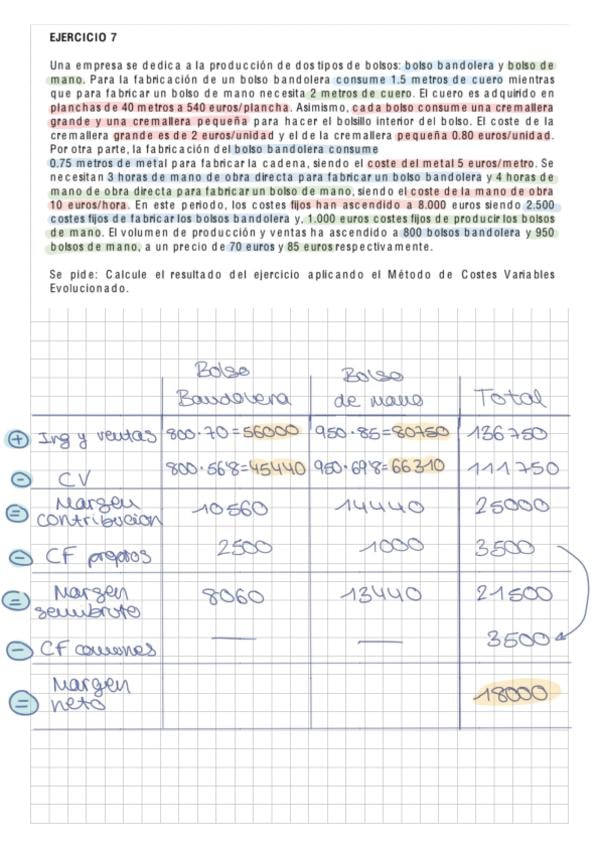 EJERCICIO 7
Una empresa se dedica a la producción de dos tipos de bolsos: bolso bandolera y bolso de
mano. Para la fabricación de un bolso bandolera consume 1.5 metros de cuero mientras
que para fabricar un bolso de mano necesita 2 metros de cuero. El cuero es adquirido en
planchas de 40 metros a 540 euros/plancha. Asimismo, cada bolso consume una cremallera
grande y una cremallera pequeña para hacer el bolsillo interior del bolso. El coste de la
cremallera grande es de 2 euros/unidad y el de la cremallera pequeña 0.80 euros/unidad.
Por otra parte, la fabricación del bolso bandolera consume
0.75 metros de metal para fabricar la cadena, siendo el coste del metal 5 euros/metro. Se
necesitan 3 horas de mano de obra directa para fabricar un bolso bandolera y 4 horas de
mano de obra directa para fabricar un bolso de mano, siendo el coste de la mano de obra
10 euros/hora. En este periodo, los costes fijos han ascendido a 8.000 euros siendo 2.500
costes fijos de fabricar los bolsos bandolera y, 1.000 euros costes fijos de producir los bolsos
de mano. El volumen de producción y ventas ha ascendido a 800 bolsos bandolera y 950
bolsos de mano, a un precio de 70 euros y 85 euros respectivamente.
Se pide: Calcule el resultado del ejercicio aplicando el Método de Costes Variables
Evolucionado.
Bolso Bandolera Bolso de mano Total
+ Ing y ventas 800·70=56000 950·85=80750 136750
- CV 800·56'8=45440 950·69'8=66310 111750
= Margen contribucion 10560 14440 25000
- CF propios 2500 1000 3500
= Margen semibruto 8060 13440 21500
- CF comunes — — 3500
= Margen neto 18000